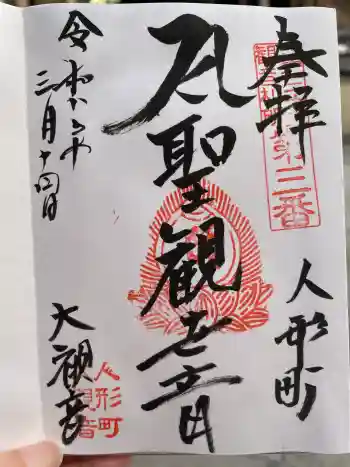 奉拝
第三番
人形町
聖観世音
令和六年
三月十四日
大観音
人形町
観音